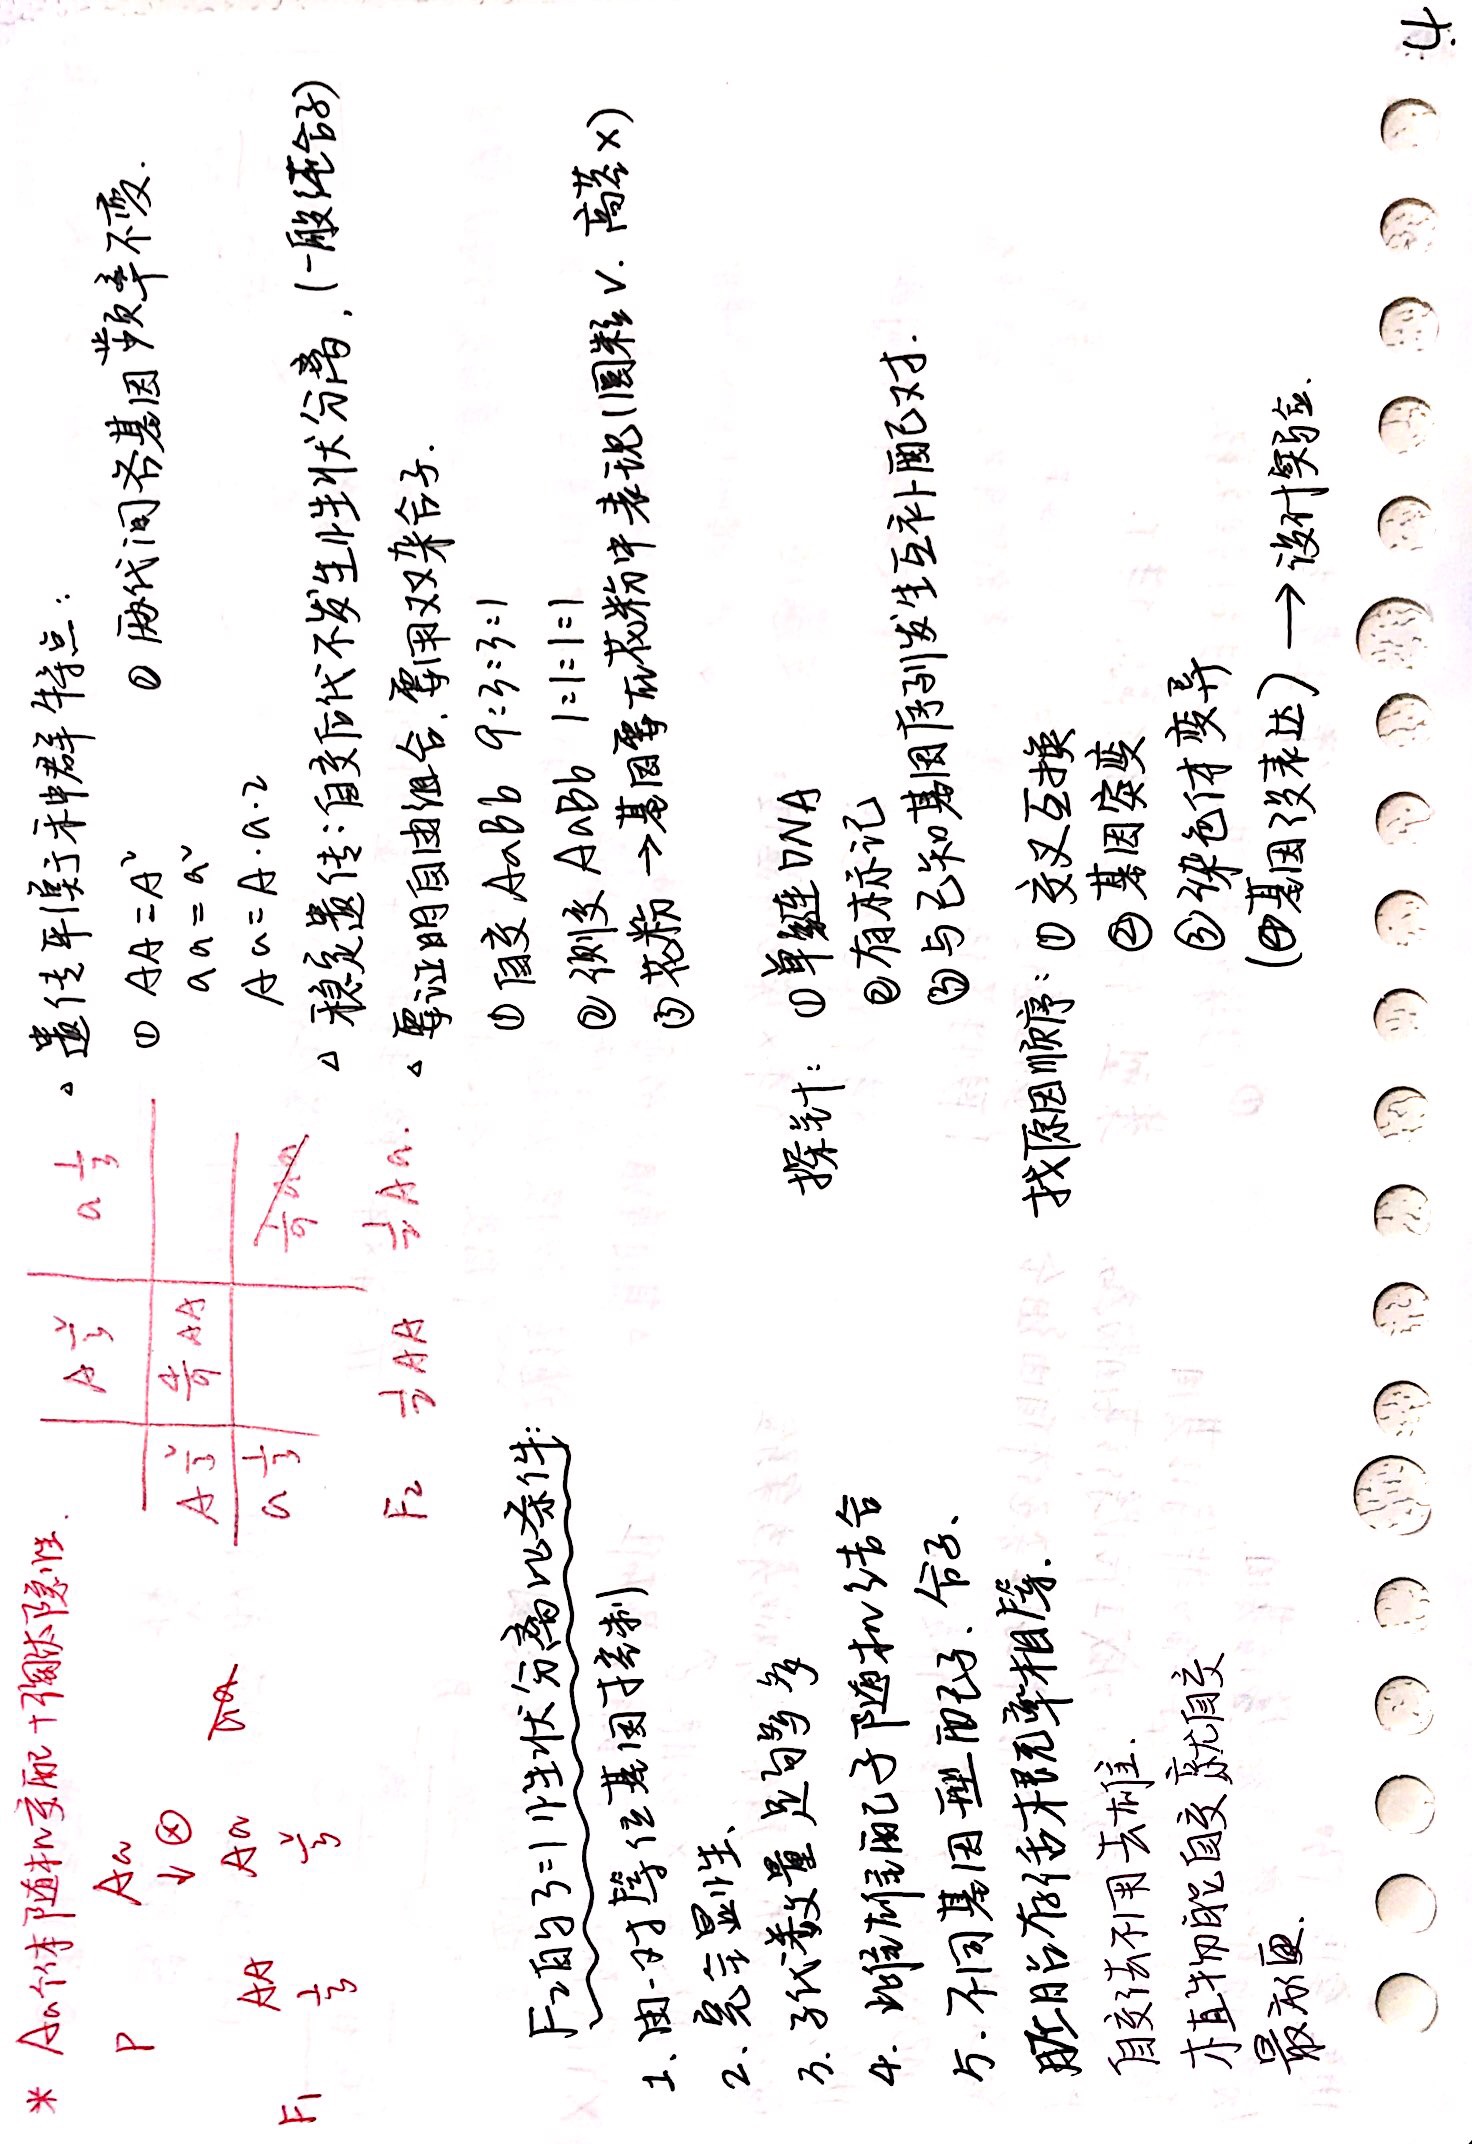 * Aa个体随机交配+淘汰隐性.
P Aa
↓ ⊗
F₁ AA Aa aa
1/3 2/3
A 2/3 a 1/3
A 2/3 4/9 AA
a 1/3 1/9 aa
F₂ 1/2 AA 1/2 Aa.
F₂的3:1性状分离比条件:
1. 由一对等位基因控制
2. 完全显性.
3. 子代数量足够多
4. 雌雄配子随机结合
5. 不同基因型配子、合子、
胚胎存活概率相等.
自交法不用去雄.
植物能自交就自交
最方便.
△ 遗传平衡种群特点:
① AA=A² ② 两代间各基因频率不变.
aa=a²
Aa=A·a·2
△ 稳定遗传:自交后代不发生性状分离.(一般纯合子)
△ 要证明自由组合.要用双杂合子.
① 自交 AaBb 9:3:3:1
② 测交 AaBb 1:1:1:1
③ 花粉→基因要在花粉中表现(圆粒√.高茎×)
探针: ①单链DNA
②有标记
③与已知基因序列发生互补配对.
找原因顺序: ① 交叉互换
② 基因突变
③ 染色体变异
(④基因没表达) → 设计实验.
4.